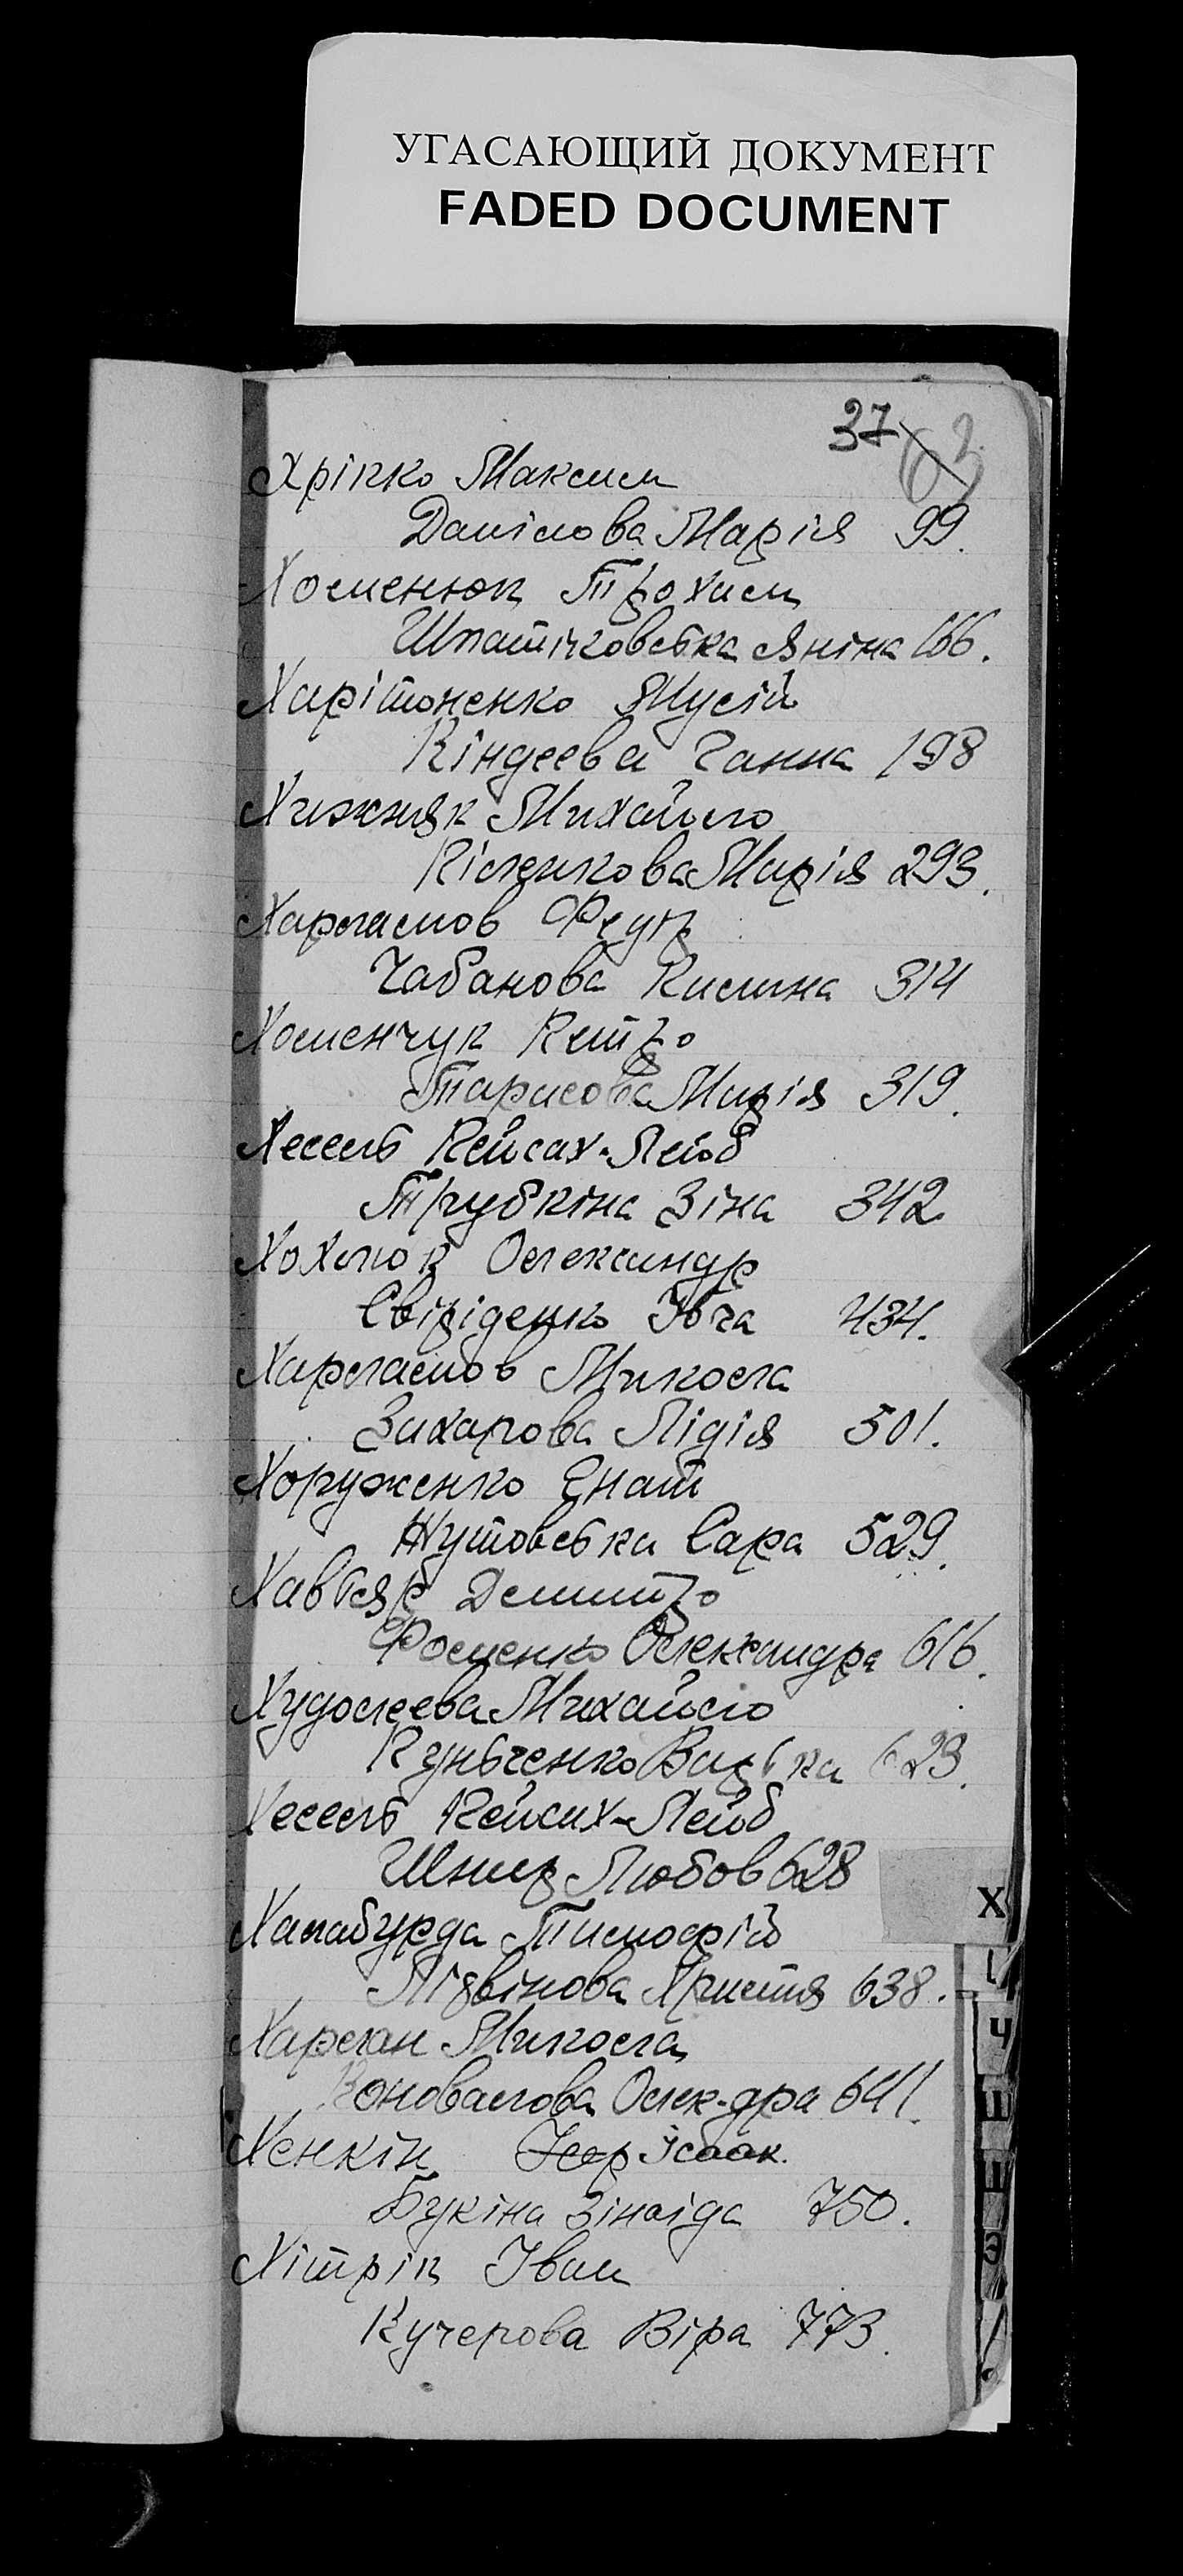 УГАСАЮЩИЙ ДОКУМЕНТ
FADED DOCUMENT
37 63
Хріпко Максим
Данілова Марія 99.
Хоменюк Трохим
Шпатіковська Яніна 166.
Харітоненко Мусій
Кіндеева Ганна 198
Хижняк Михайло
Марія 293.
Харламов Федір
Чабанова Килина 314
Хоменчук Петро
Тарасова Марія 319.
Хесель Пейсах-Лейб
Трубкіна Зіна 342.
Хохлюк Олександр
Свіріденко Ївга 434.
Харламов Микола
Захарова Лідія 501.
Хоруженко Гнат
Жутовська Сара 529.
Хавьяр Дмитро
Фоменко Олександра 616.
Худолеева Михайло
Куньченко Варька 623.
Хесель Пейсах-Лейб
Шнир Любов 628
Халабурда Тимофій
Літвінова Христя 638.
Харлан Микола
Коновалова Олек-дра 641.
Хенкін Ісер Ісаак.
Букіна Зінаіда 750.
Хітрік Іван
Кучерова Віра 773.
Х
Ч
Ш
Э